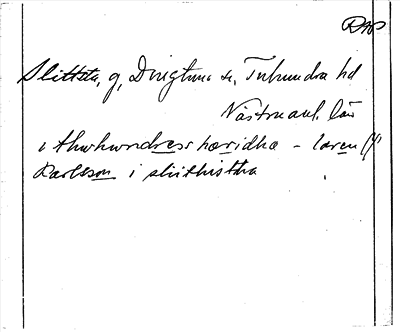 DMS
Slitsta, g, Dingtuna sn, Tuhundra hd
Västmanl. län
i thwhwndress hæridha - laren
Karlsson i sliithistha